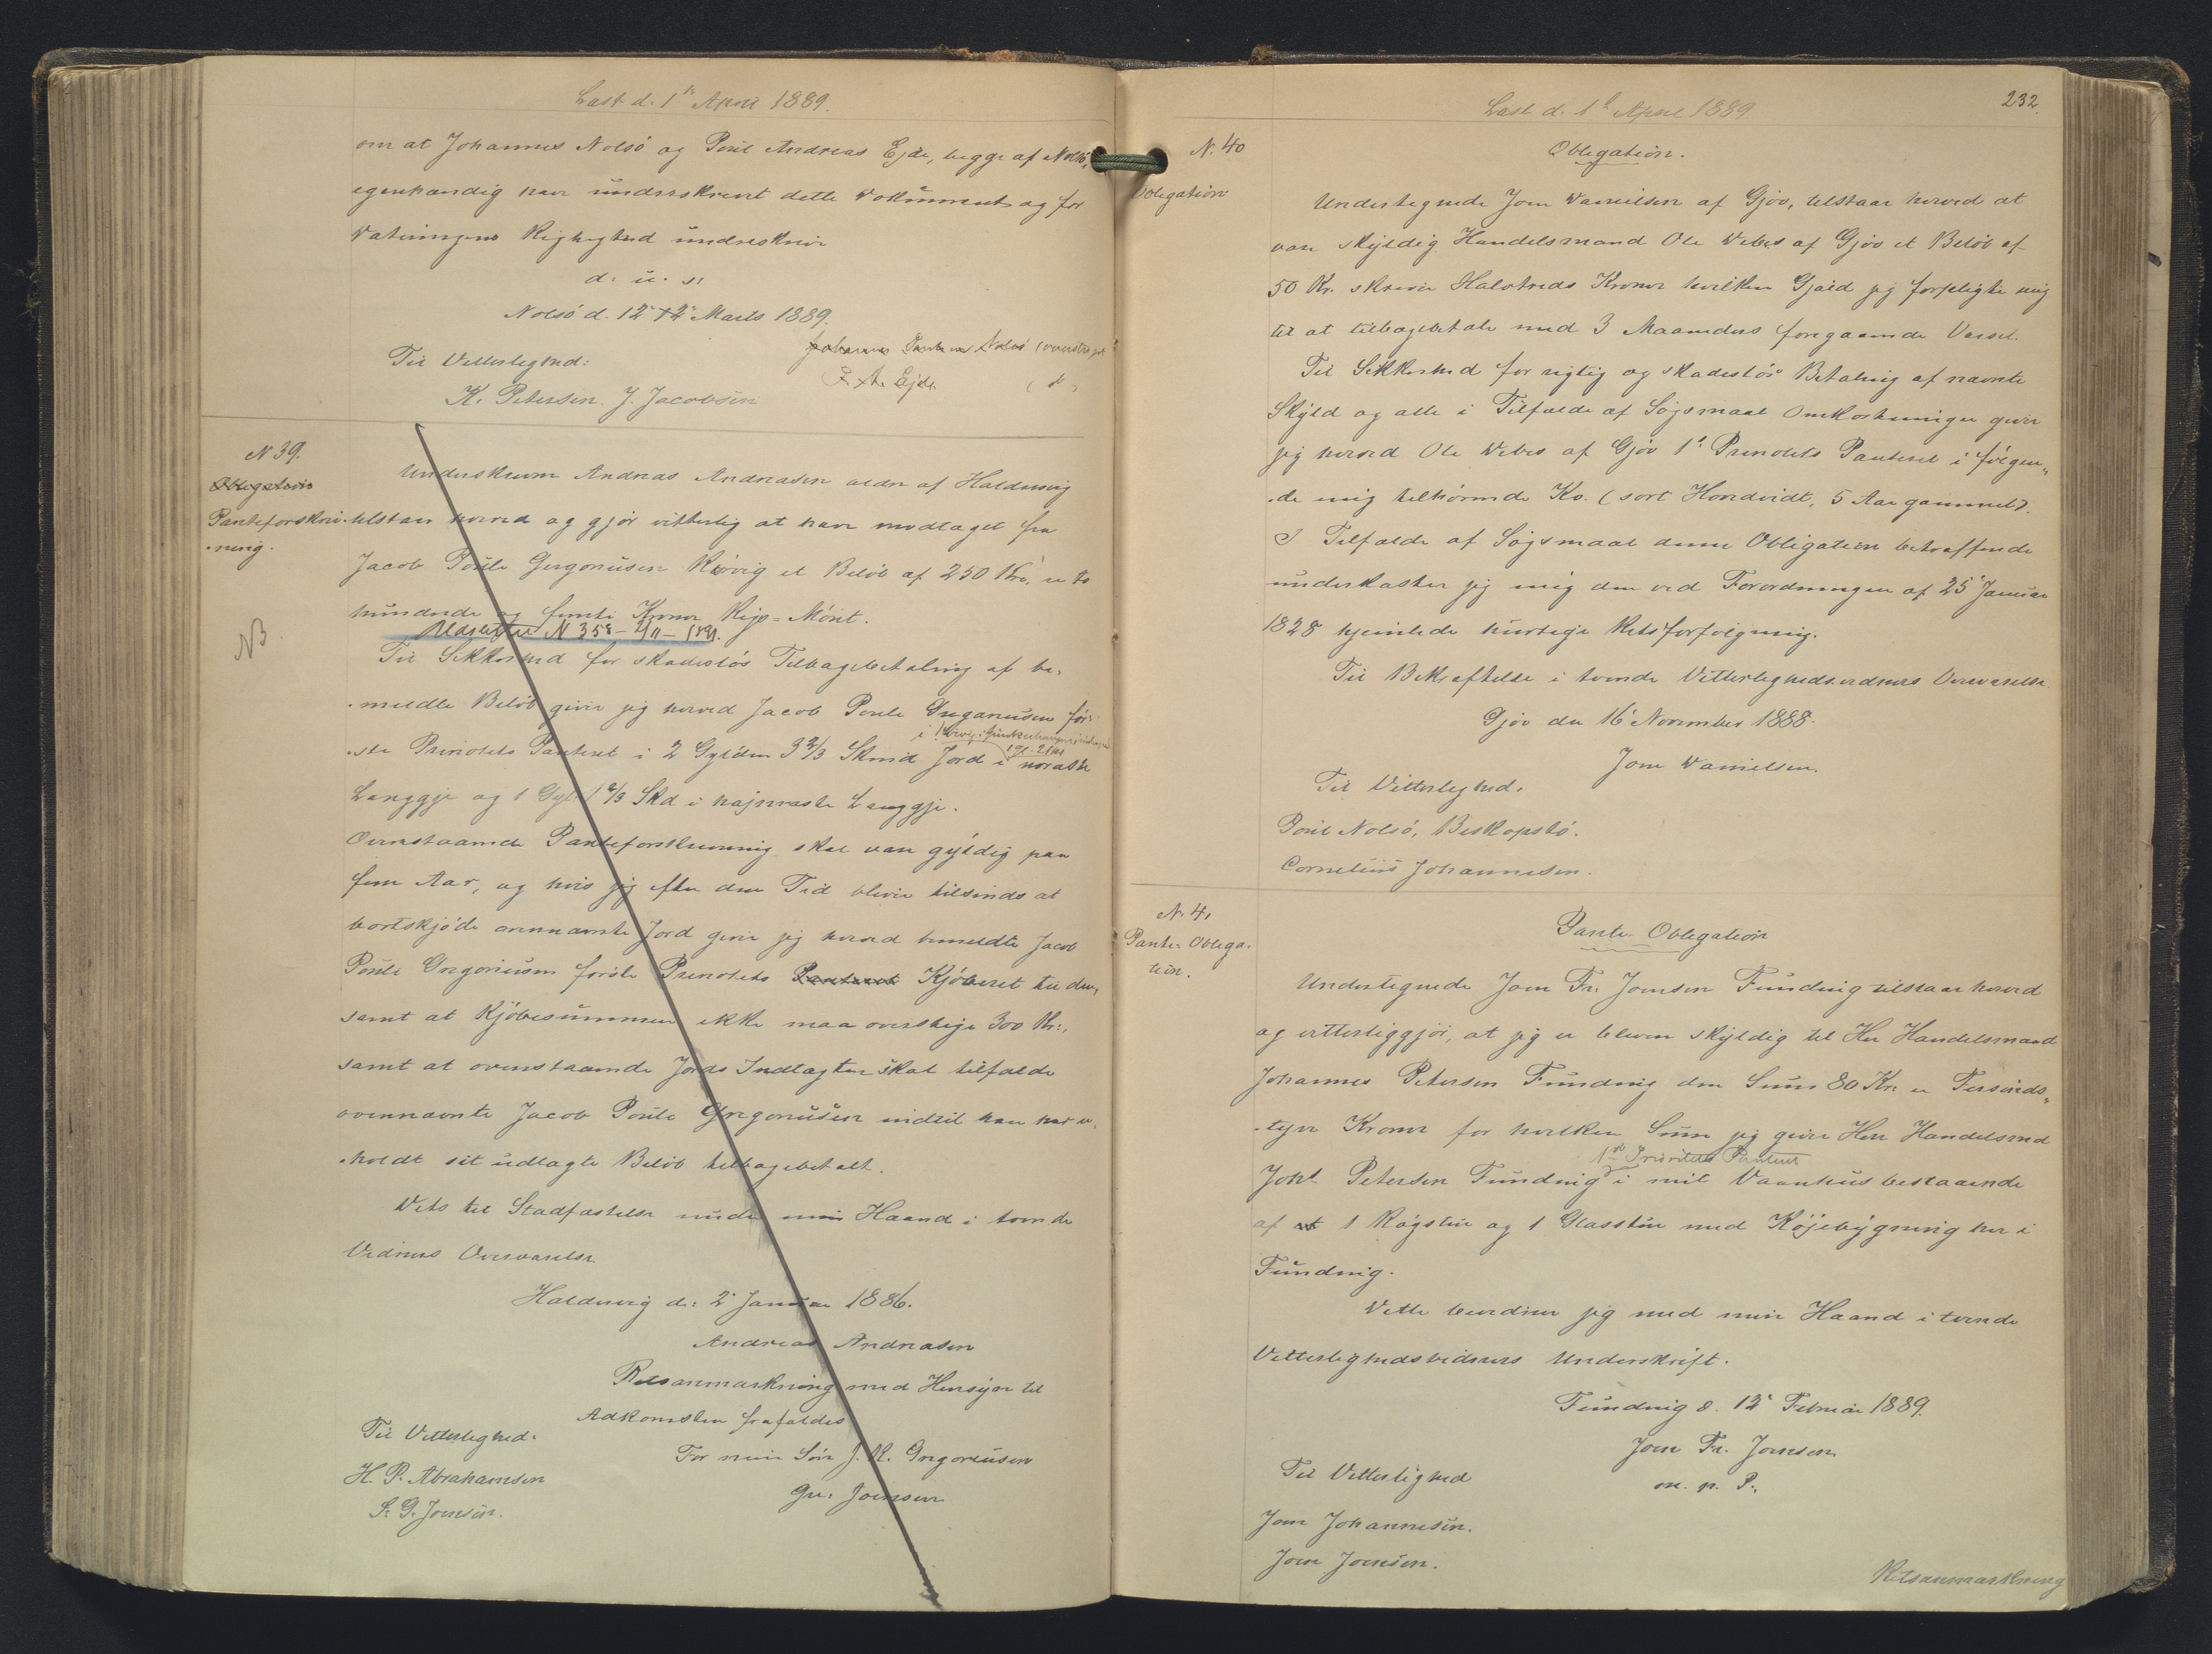 Læst d. 1ste April 1889.
om at Johannes Nolsö og Poul Andreas Ejde, begge af Nolsö,
egenhændig have underskrevet dette Dokument og for
Dateringens Rigtighed underskrive
d. u. s.
Nolsö d. 12' Marts 1889.
Johannes Nolsö
Til Vitterlighed:
P. A. Ejde
K. Petersen. J. Jacobsen
N 39.
Obligation
Panteforskriv-
-ning.
NB.
Underskreven Andreas Andreasen ældre af Haldervig
tilstaar herved og gjör vitterlig at have modtaget fra
Jacob Poule Gregoriusen et Belöb af 250 Kr. er to
hundrede og femti Kroner Rigs-Mönt.
Udslettet N 358 - 4/11 - 1891.
Til Sikkerhed for skadeslös Tilbagebetaling af be-
-meldte Belöb giver jeg herved Jacob Poule Gregoriusenför-
-ste Prioritets Panteret i 2 Gylden 3 2/3 Skind Jord i
Langgje og 1 Gyl. 1 2/3 Skd i Langgje.
Ovenstaaende Panteforskrivning skal være gyldig paa
fem Aar, og hvis jeg efter den Tid bliver tilsinds at
bortskjöde ovennævnte Jord giver jeg herved bemeldte Jacob
Poule Gregoriusen förste Prioritets Panteret Kjöberet til den,
samt at Kjöbesummen ikke maa overstige 300 Kr.,
samt at ovenstaaende Jords Indtægter skal tilfalde
ovennævnte Jacob Poule Gregoriusen indtil han har er-
-holdt sit udlagte Belöb tilbagebetalt.
Dets til Stadfæstelse under min Haand i tvende
Vidners Overværelse
Haldervig d. 2' Januar 1886.
Andreas Andreasen
Retsanmærkning med Hensyn til
Adkomsten frafaldes
Til Vitterlighed:
For min Sön J. P. Gregoriusen
H. P. Abrahamsen
Gr. Joensen
S. G. Joensen.
232.
Læst d. 1ste April 1889
N. 40
Obligation
Obligation.
Undertegnede Joen Danielsen af Gjov, tilstaar herved at
være skyldig Handelsmand Ole Debes af Gjov et Belöb af
50 Kr. skriver Halvtreds Kroner hvilken Gjæld jeg forpligter mig
til at tilbagebetale med 3 Maaneders foregaaende Varsel.
Til Sikkerhed for rigtig og skadeslös Betaling af nævnte
Skyld og alle i Tilfælde af Sögsmaal Omkostninger giver
jeg herved Ole Debes af Gjov 1' Prioritets Panteret i fölgen-
-de mig tilhörende Ko. (sort Hovedvidt, 5 Aar gammel).
I Tilfælde af Sögsmaal denne Obligation betræffende
underkaster jeg mig den ved Forordningen af 25' Januar
1828 hjemlede hurtige Retsforfölgning.
Til Bekræftelse i tvende Vitterlighedsvidners Overværelse
Gjov den 16' November 1888.
Joen Danielsen.
Til Vitterlighed.
Poul Nolsö, Biskopstö.
Cornelius Johannesen.
N. 41
Pante-Obliga-
tion.
Pante-Obligation
Undertegnede Joen Fr. Joensen Funding tilstaar herved
og vitterliggjör, at jeg er bleven skyldig til Hr Handelsmand
Johannes Petersen Funding den Sum 80 Kr. er Firsinds-
-tyve Kroner for hvilken Sum jeg giver Herr Handelsmd
1ste Prioritets Panteret
Johs Petersen Funding i mit Vaanhus bestaaende
af et 1 Rögstue og 1 Glasstue med Köjebygning her i
Funding.
Dette bevidner jeg med min Haand i tvende
Vitterlighedsvidners Underskrift.
Funding d. 12' Februar 1889.
Joen Fr. Joensen
m. p. P.
Til Vitterlighed
Joen Johannesen.
Joen Joensen.
Retsanmærkning